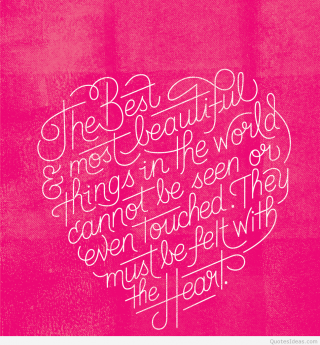 The Best
& most beautiful
things in the world
cannot be seen or
even touched. They
must be felt with
the Heart.
QuotesIdeas.com